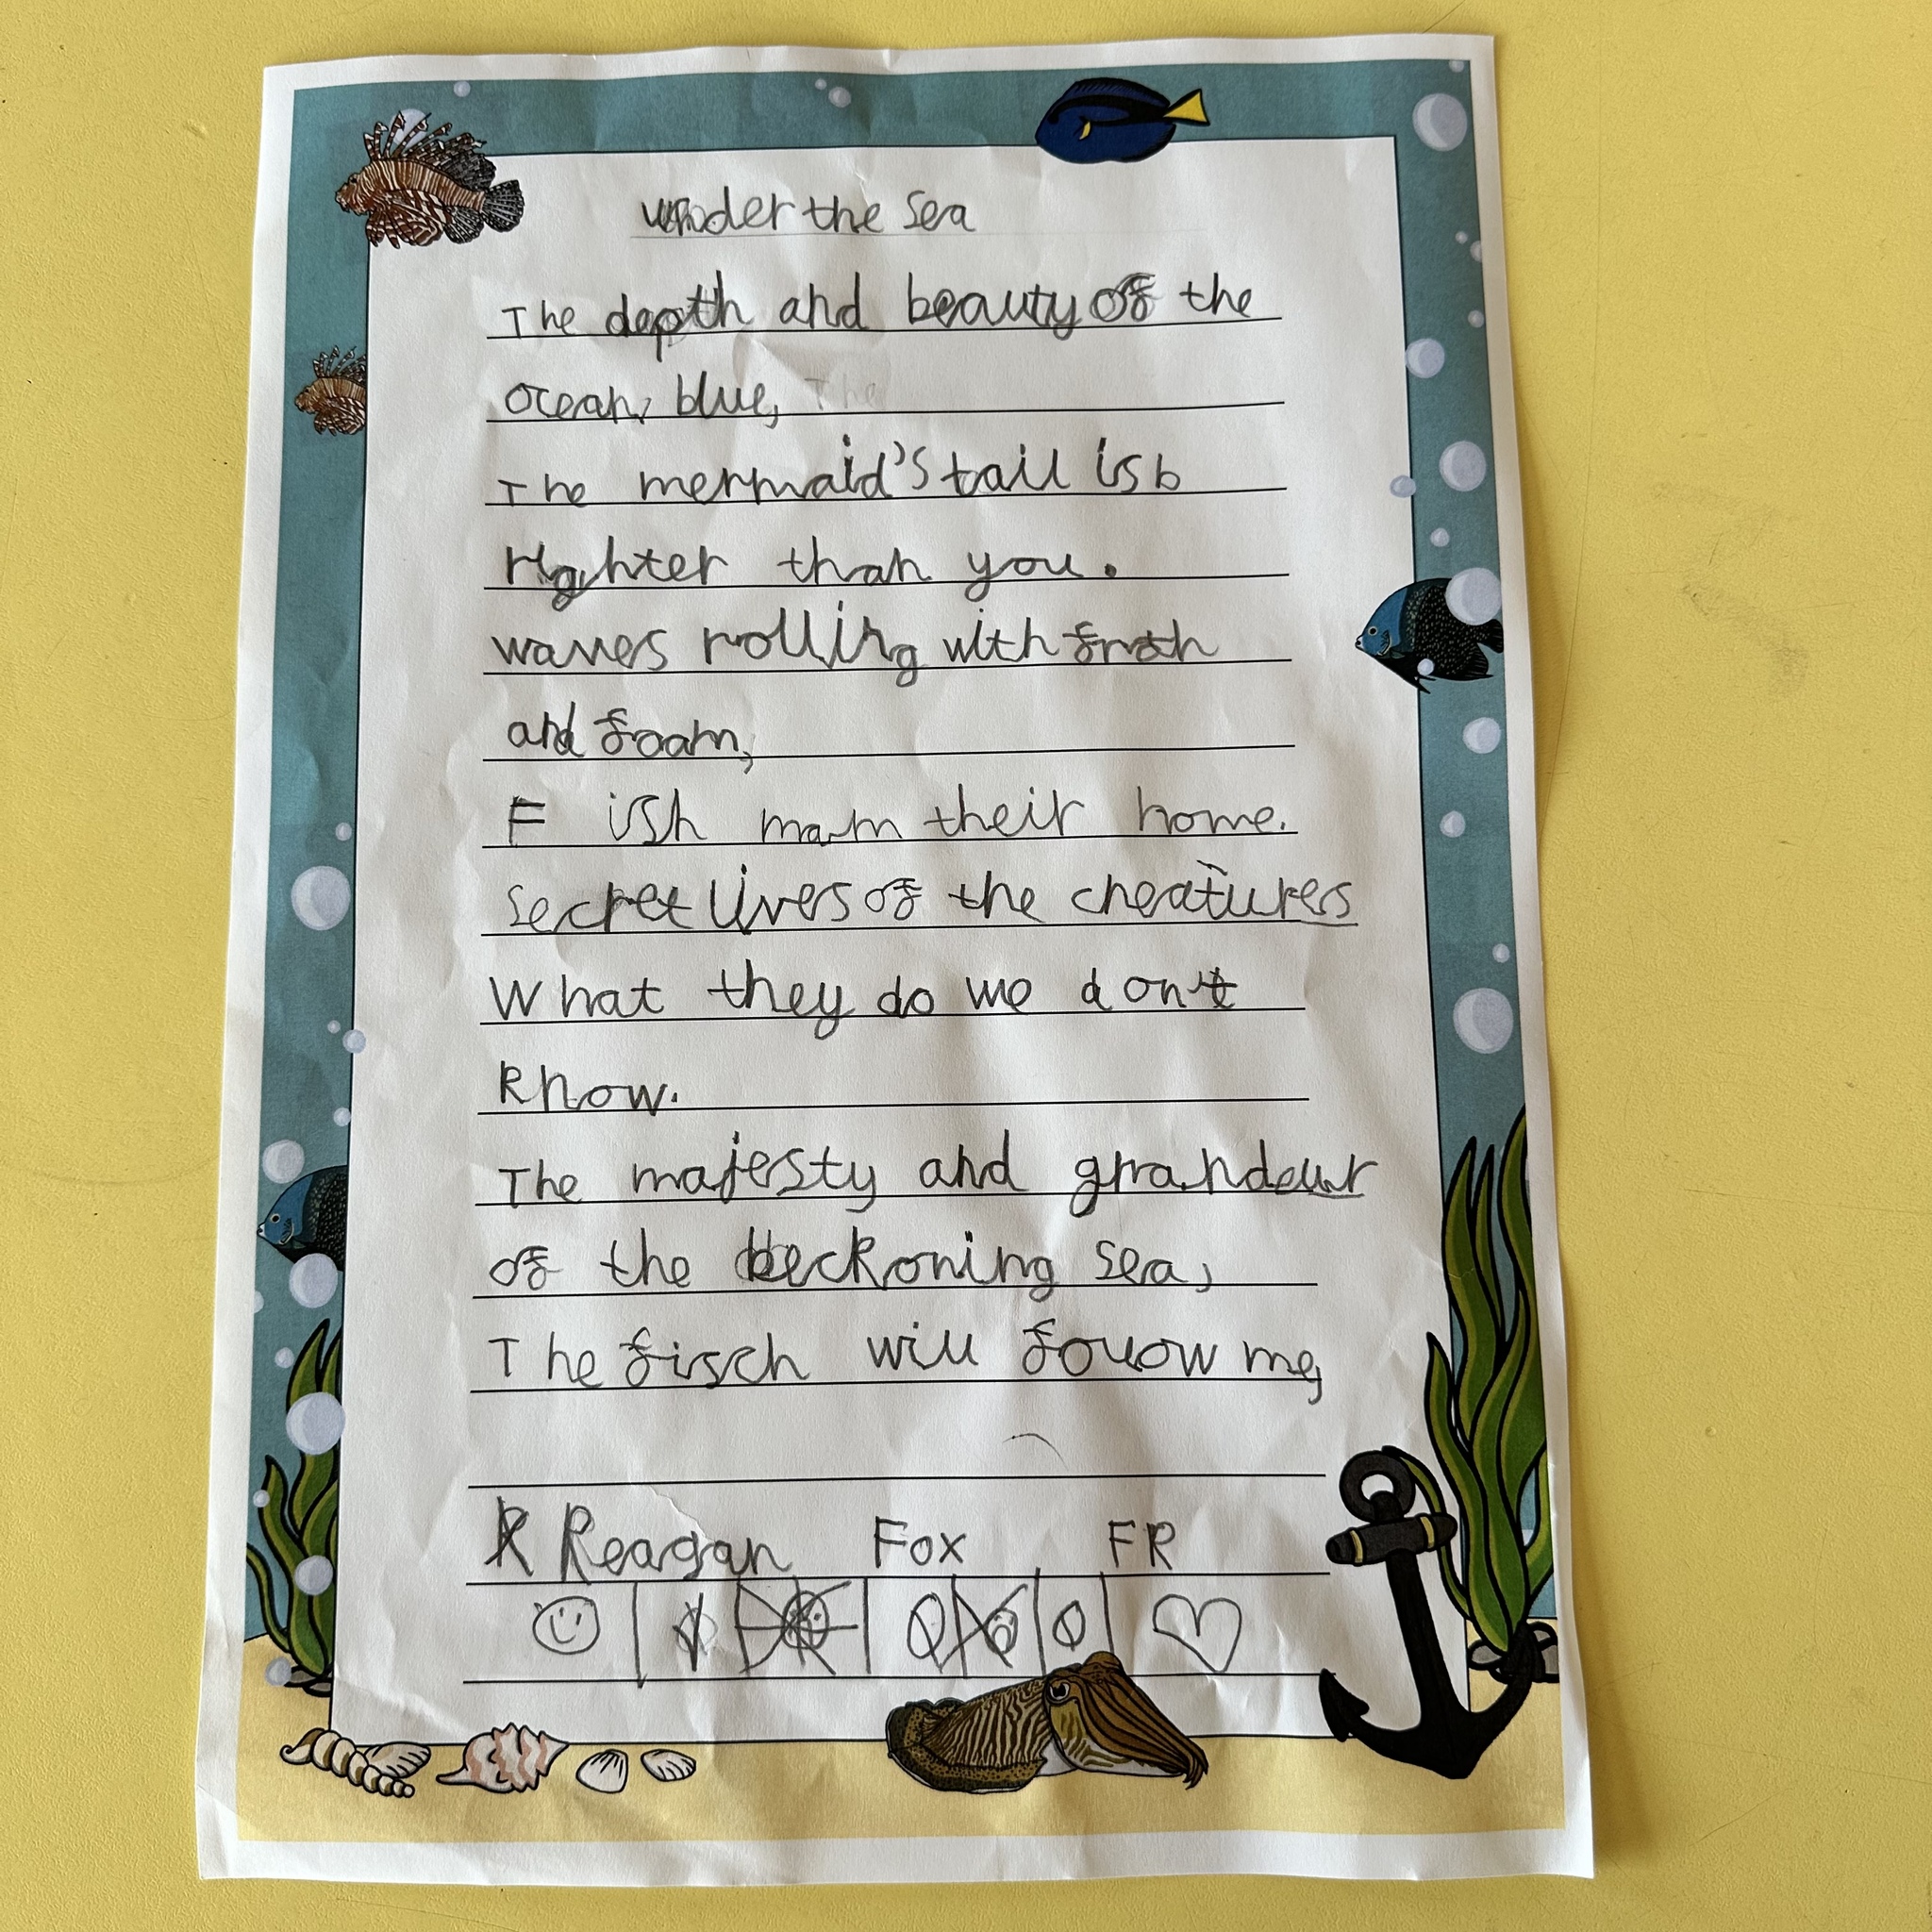 under the sea
The depth and beauty of the
ocean, blue, The
The mermaid's tail is b
righter than you.
waves rolling with froth
and foam,
F ish mam their home.
secret lives of the creatures
What they do we don't
know.
The majesty and grandeur
of the beckoning sea,
The fisch will follow me,
R Reagan Fox FR